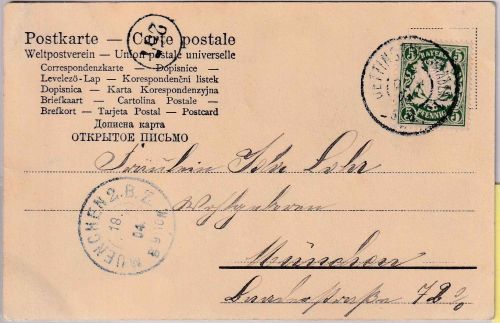 Postkarte — Carte postale
Weltpostverein — Union postale universelle
Correspondenzkarte — Dopisnice
Levelező-Lap — Korespondenční listek
Dopisnica — Karta Korespondenzyjna
Briefkaart — Cartolina Postale
Brefkort — Tarjeta Postal — Postcard
Дописна карта
ОТКРЫТОЕ ПИСЬМО
BAYERN
5 5
PFENNIG
Fräulein
Wohlgeboren
München
MUENCHEN 2. B.Z.
18.
04.